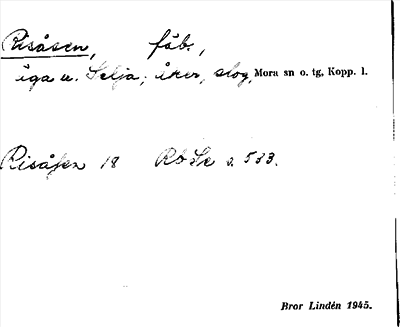 Risåsen, fäb.,
äga u. Selja; åker, skog, Mora sn o. tg, Kopp. l.
Risåsen 18 Rb Se s. 533.
Bror Lindén 1945.